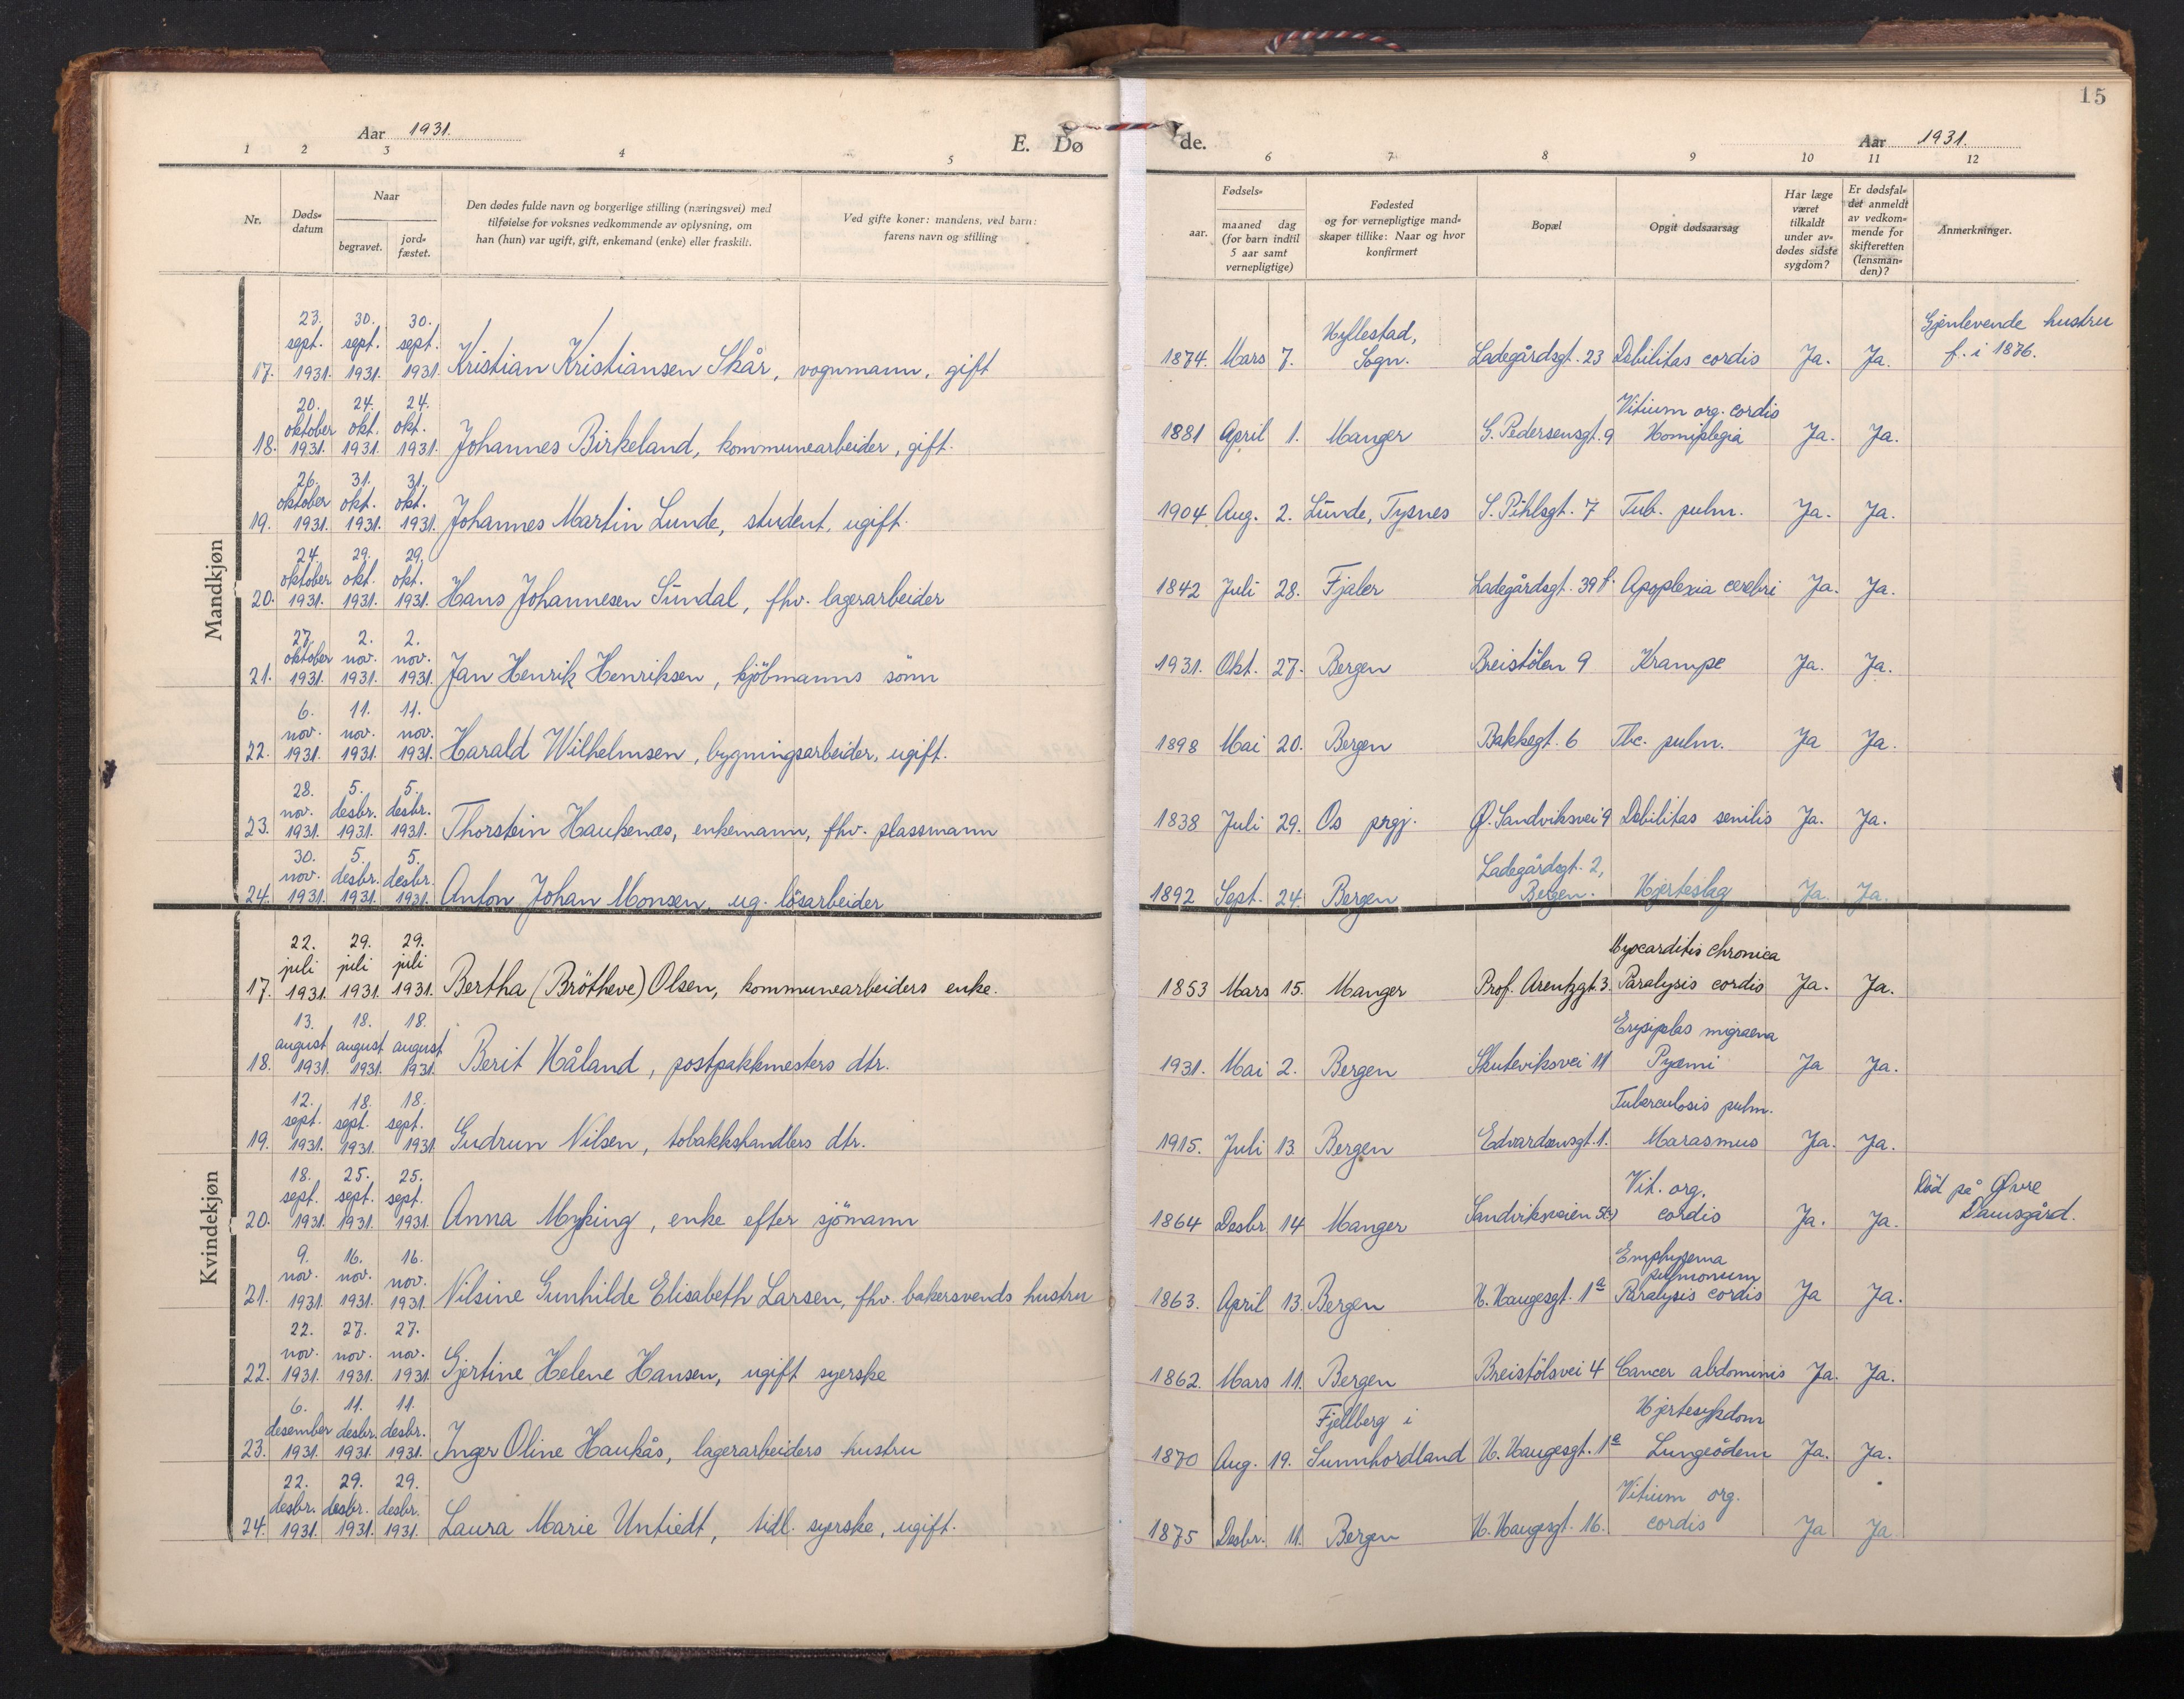 15
Aar 1931. E. Dø de. Aar 1931.
1 2 3 4 5 6 7 8 9 10 11 12
Nr.
Døds-
datum
Naar
begravet.
jord-
fæstet.
Den dødes fulde navn og borgerlige stilling (næringsvei) med
tilføielse for voksnes vedkommende av oplysning, om
han (hun) var ugift, gift, enkemand (enke) eller fraskilt.
Ved gifte koner: mandens, ved barn:
farens navn og stilling
Fødsels-
aar.
maaned dag
(for barn indtil
5 aar samt
vernepligtige)
Fødested
og for vernepligtige mand-
skaper tillike: Naar og hvor
konfirmert
Bopæl
Opgit dødsaarsag
Har læge
været
tilkaldt
under av-
dødes sidste
sygdom?
Er dødsfal-
det anmeldt
av vedkom-
mende for
skifteretten
(lensman-
den)?
Anmerkninger.
Mandkjøn
23. 30. 30. Gjenlevende hustru
sept. sept. sept. Hyllestad,
17. 1931. 1931. 1931. Kristian Kristiansen Skår, vognmann, gift 1874. Mars 7. Sogn. Ladegårdsgt. 23 Debilitas cordis Ja. Ja. f. i 1876.
20. 24. 24. Vitium org. cordis
oktober okt. okt.
18. 1931. 1931. 1931. Johannes Birkeland, kommunearbeider, gift. 1881 April 1. Manger G. Pedersensgt. 9 Homiplegia Ja. Ja.
26. 31. 31.
oktober okt. okt.
19. 1931. 1931. 1931. Johannes Martin Lunde, student, ugift. 1904. Aug. 2. Lunde, Tysnes S. Pihlsgt. 7 Tub. pulm. Ja. Ja.
24. 29. 29.
oktober okt. okt.
20. 1931. 1931. 1931. Hans Johannesen Sundal, fhv. lagerarbeider 1842 Juli 28. Fjaler Ladegårdsgt. 39 Apoplexia cerebri Ja. Ja.
27. 2. 2.
oktober nov. nov.
21. 1931. 1931. 1931. Jan Henrik Henriksen, kjöbmanns sönn 1931. Okt. 27. Bergen Breistölen 9 Krampe Ja. Ja.
6. 11. 11.
nov. nov. nov.
22. 1931. 1931. 1931. Harald Wilhelmsen, bygningsarbeider, ugift. 1898 Mai 20. Bergen Bakkegt. 6 Tbc. pulm. Ja Ja.
28. 5. 5.
nov. desbr. desbr.
23. 1931. 1931. 1931. Thorstein Haukenæs, enkemann, fhv. plassmann 1838 Juli 29. Os prgj. Ø. Sandviksvei 9 Debilitas senilis Ja. Ja.
30. 5. 5. Ladegårdsgt. 2,
nov. desbr. desbr.
24. 1931. 1931. 1931. Anton Johan Monsen, ug. lösarbeider 1892 Sept. 24. Bergen Bergen. Hjerteslag Ja. Ja.
Kvindekjøn
22. 29. 29. Myocarditis chronica
juli juli juli
17. 1931. 1931. 1931. Bertha (Brötheve) Olsen, kommunearbeiders enke. 1853 Mars 15. Manger Prof. Arentzgt. 3. Paralysis cordis Ja. Ja.
13. 18. 18. Erysipelas migraena
august august august
18. 1931. 1931. 1931. Berit Håland, postpakkmesters dtr. 1931. Mai 2. Bergen Skuteviksvei 11 Pyæmi Ja Ja.
12. 18. 18. Tuberculosis pulm.
sept. sept. sept.
19. 1931. 1931. 1931. Gudrun Nilsen, tobakkshandlers dtr. 1915. Juli 13. Bergen Edvardsensgt. 1. Marasmus Ja. Ja.
18. 25. 25. Vit. org. Död på Øvre
sept. sept. sept.
20. 1931. 1931. 1931. Anna Myking, enke efter sjömann 1864 Desbr. 14 Manger Sandviksveien cordis Ja. Ja. Damsgård.
9. 16. 16. Emphysema
nov. nov. nov. pulmonum
21. 1931. 1931. 1931 Nilsine Gunhilde Elisabeth Larsen, fhv. bakersvends hustru 1863. April 13. Bergen H. Haugesgt. 1a Paralysis cordis Ja Ja.
22. 27. 27.
nov. nov. nov.
22. 1931. 1931. 1931 Gjertine Helene Hansen, ugift syerske 1862. Mars 11. Bergen Breistölsvei 4 Cancer abdominis Ja. Ja.
6. 11. 11. Fjellberg i Hjertesykdom
desember desbr. desbr.
23. 1931. 1931. 1931. Inger Oline Haukås, lagerarbeiders hustru 1870 Aug. 19. Sunnhordland H. Haugesgt. 1a Lungeödem Ja. Ja.
22. 29. 29. Vitium org.
desbr. desbr. desbr.
24. 1931. 1931. 1931. Laura Marie Untiedt, tidl. syerske, ugift. 1875 Desbr. 11. Bergen H. Haugesgt. 16. cordis Ja Ja